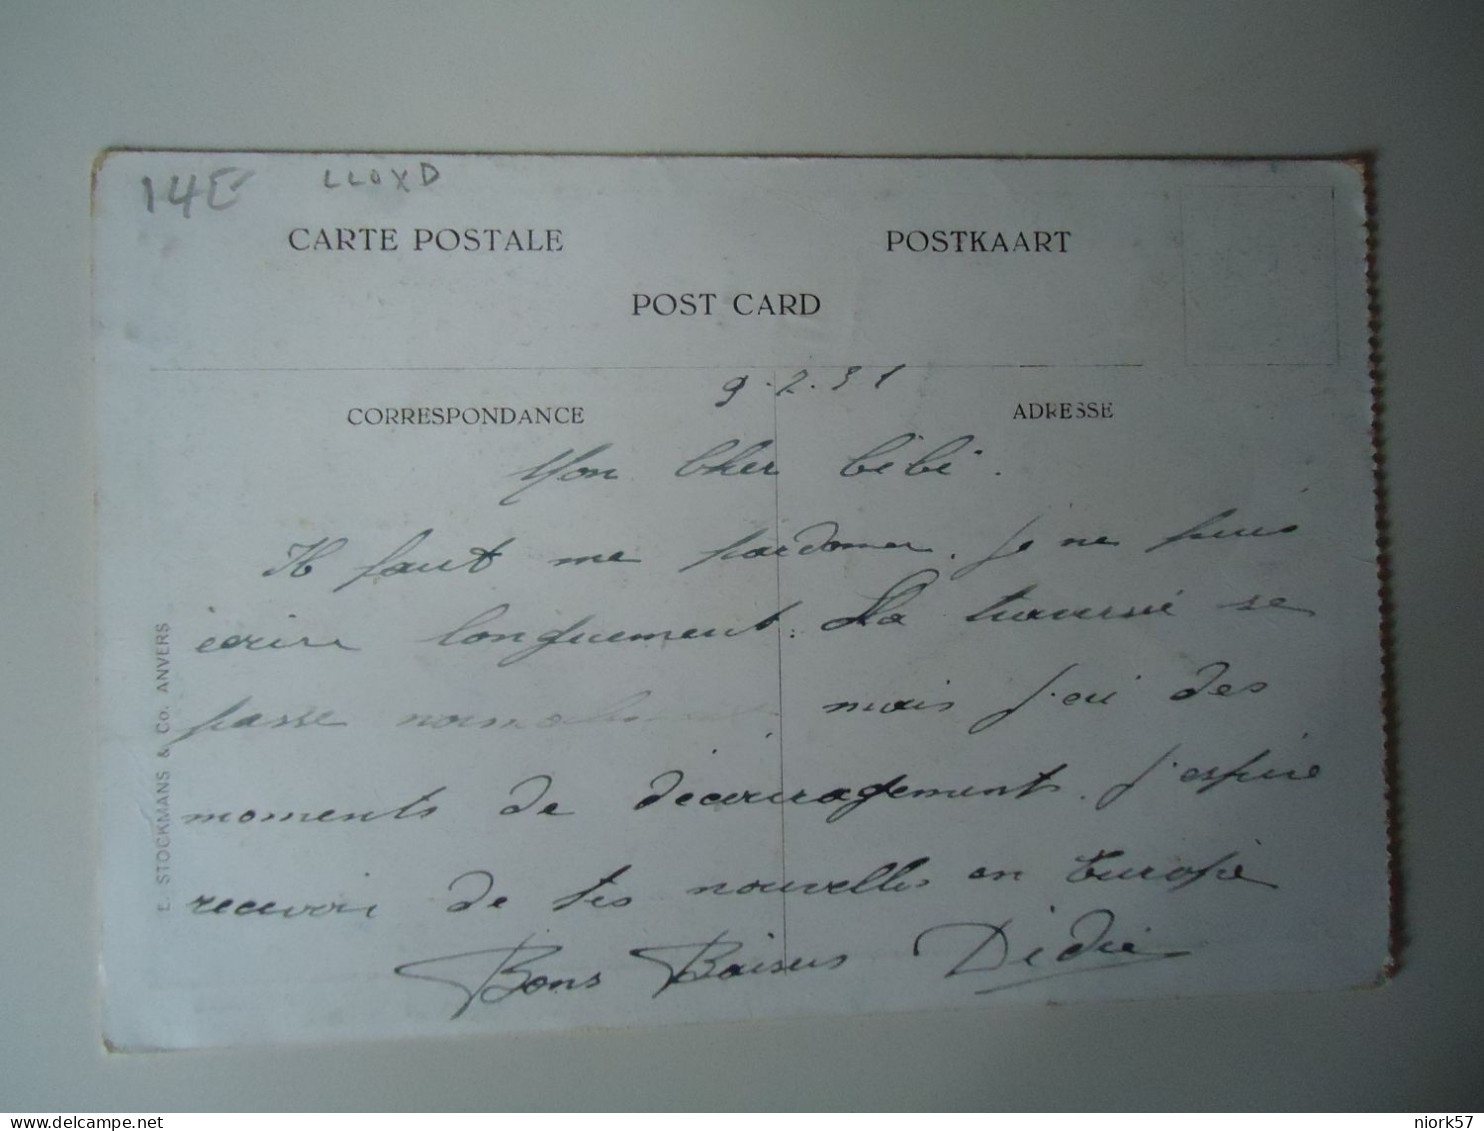 14E LLOYD
CARTE POSTALE POSTKAART
POST CARD
9.2.31
CORRESPONDANCE ADRESSE
Mon Cher bébé.
Il faut me pardonner. Je ne puis
écrire longuement. La traversée se
passe normalement mais j'ai des
moments de découragement. J'espère
recevoir de tes nouvelles en Europe
Bons Baisers Dédé
E. STOCKMANS & Co. ANVERS
niork57